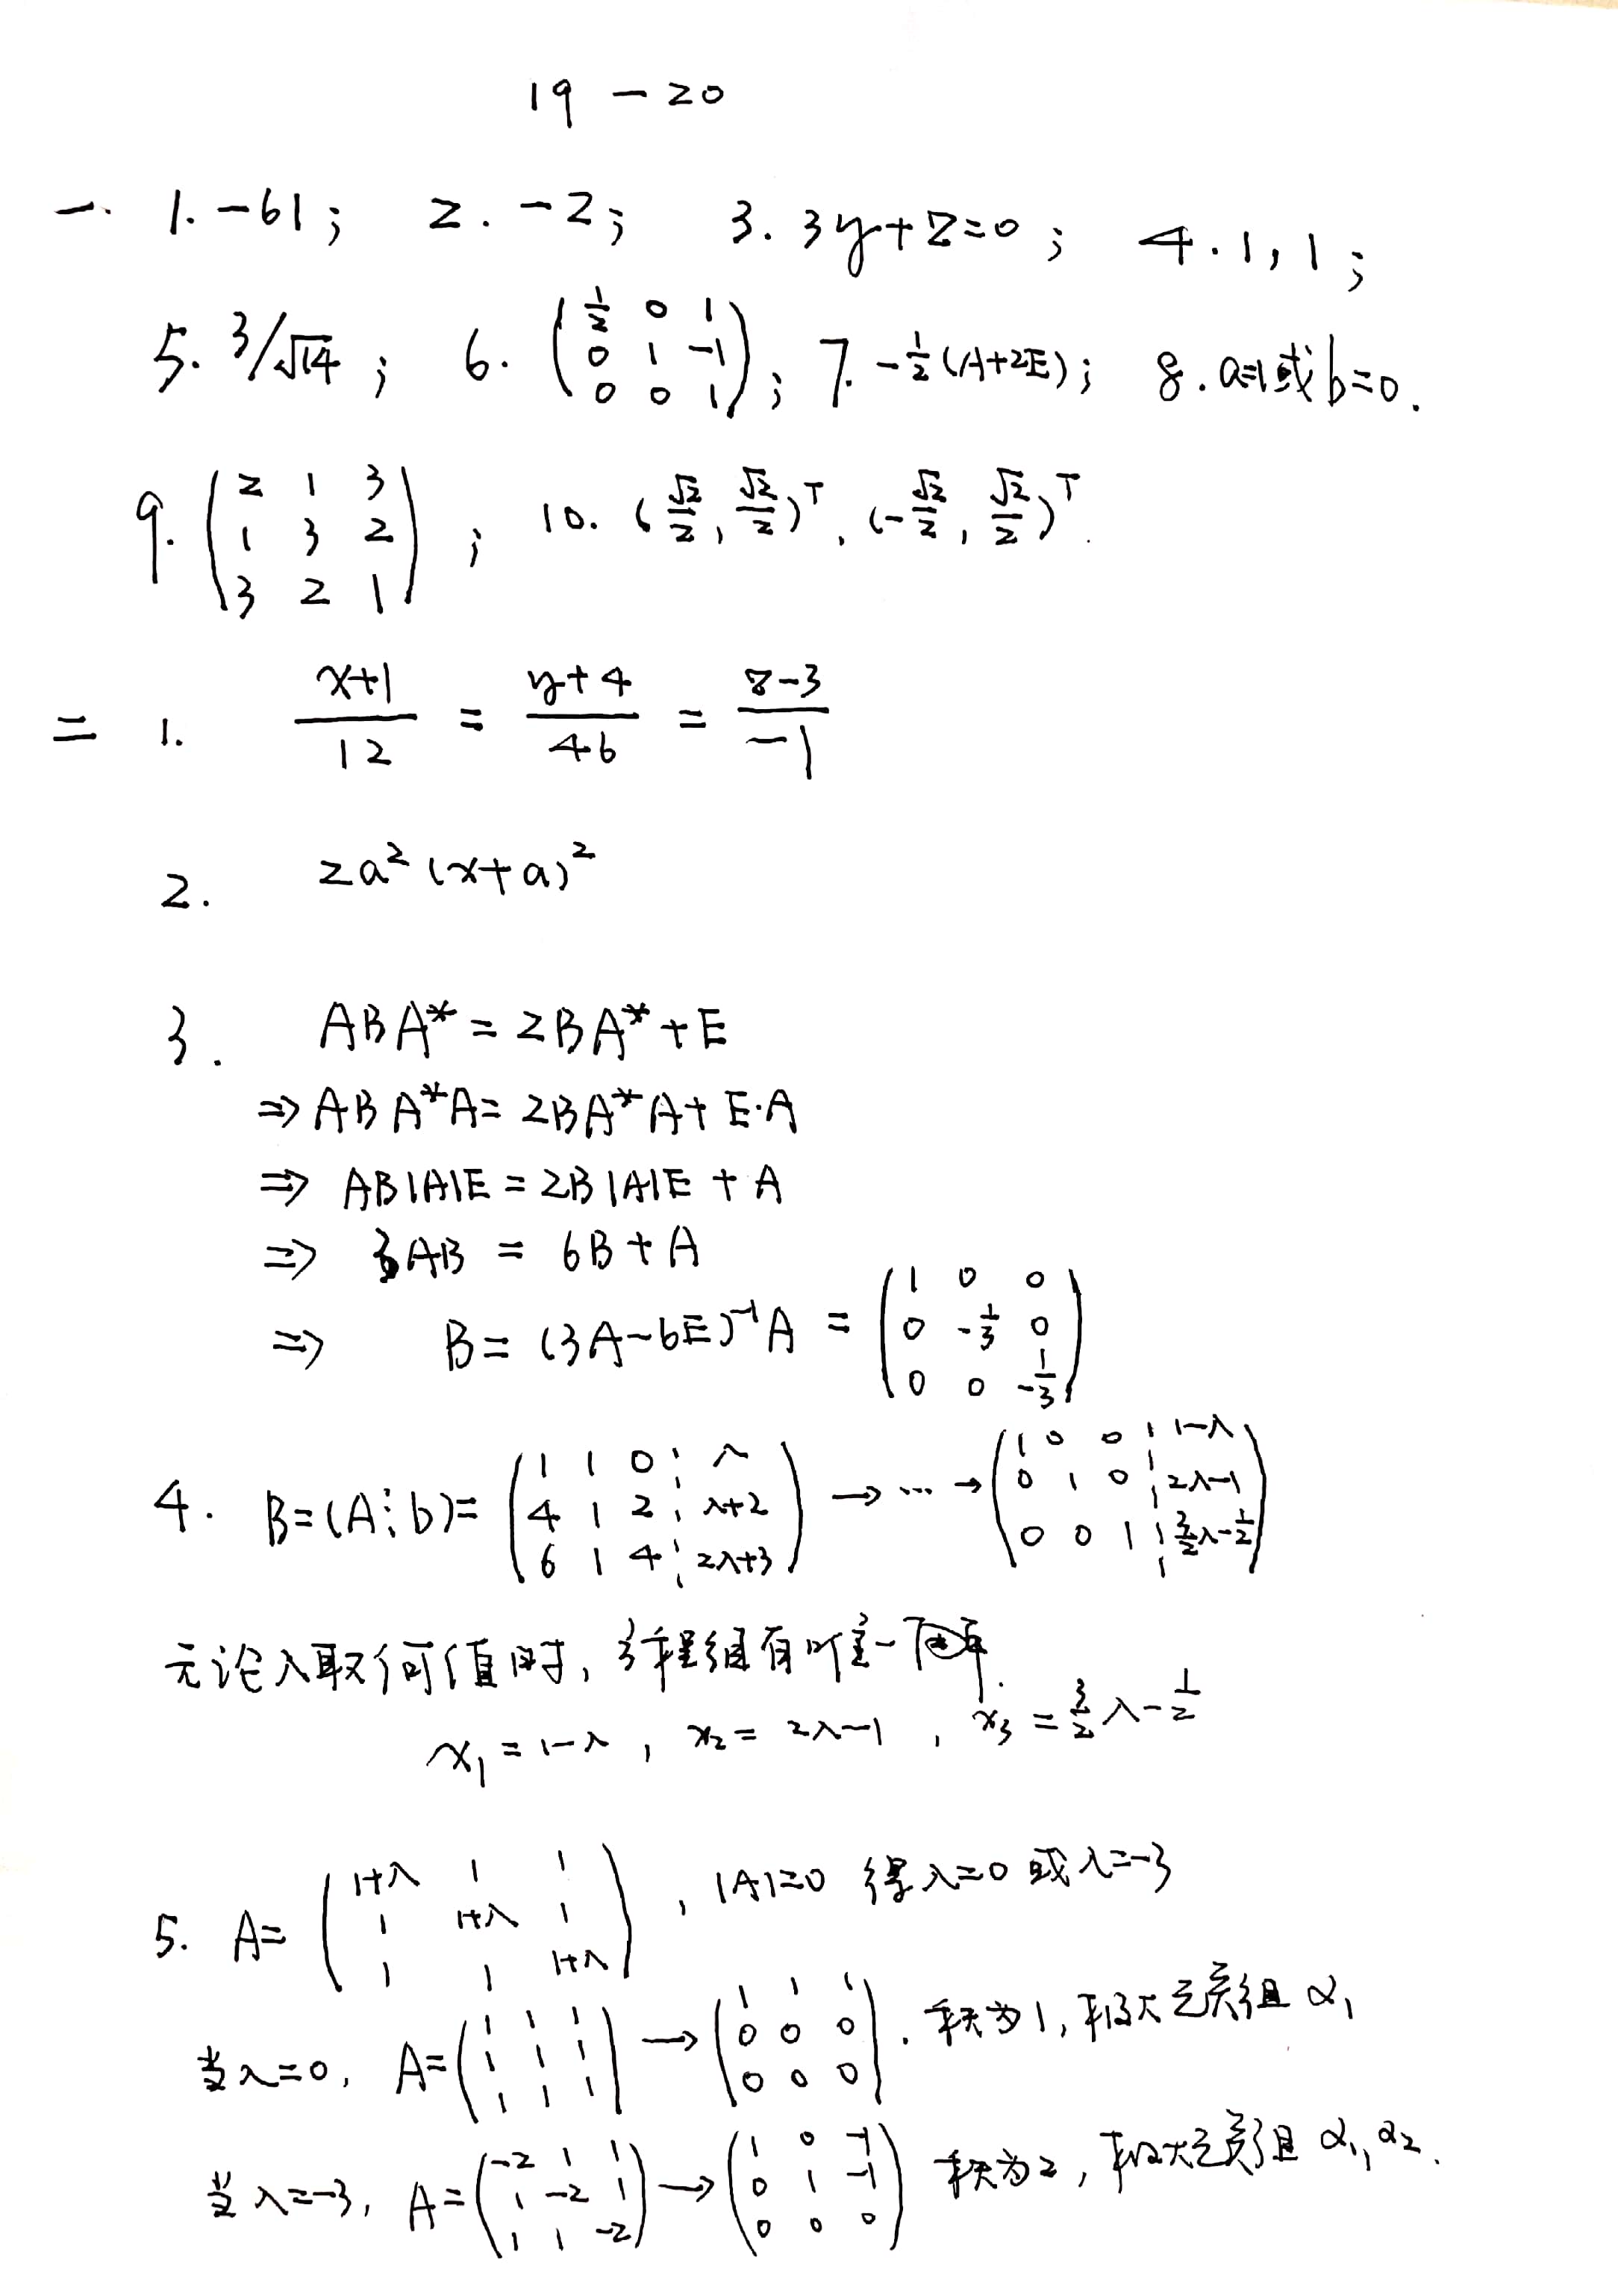 19 - 20
一. 1. -61; 2. -2; 3. 3y+z=0; 4. 1, 1;
5. 3/√14; 6. (1/2 0 1; 0 1 -1; 0 0 1); 7. -1/2(A+2E); 8. a=1或b=0.
9. (2 1 3; 1 3 2; 3 2 1); 10. (√2/2, √2/2)^T, (-√2/2, √2/2)^T.
二 1. (x+1)/12 = (y+4)/46 = (z-3)/-1
2. 2a²(x+a)²
3. ABA* = 2BA* + E
⇒ ABA*A = 2BA*A + E·A
⇒ AB|A|E = 2B|A|E + A
⇒ 3AB = 6B + A
⇒ B = (3A-6E)⁻¹A = (1 0 0; 0 -1/3 0; 0 0 -1/3)
4. B=(A⋮b)= (1 1 0 ⋮ λ; 4 1 2 ⋮ λ+2; 6 1 4 ⋮ 2λ+3) → ⋯ → (1 0 0 ⋮ 1-λ; 0 1 0 ⋮ 2λ-1; 0 0 1 ⋮ 3/2λ-1/2)
无论λ取何值时, 方程组有唯一解.
x₁ = 1-λ, x₂ = 2λ-1, x₃ = 3/2λ-1/2
5. A= (1+λ 1 1; 1 1+λ 1; 1 1 1+λ), |A|=0 得λ=0 或λ=-3
当λ=0, A=(1 1 1; 1 1 1; 1 1 1) → (1 1 1; 0 0 0; 0 0 0). 秩为1, 极大无关组 α₁
当λ=-3, A=(-2 1 1; 1 -2 1; 1 1 -2) → (1 0 -1; 0 1 -1; 0 0 0) 秩为2, 极大无关组 α₁, α₂.